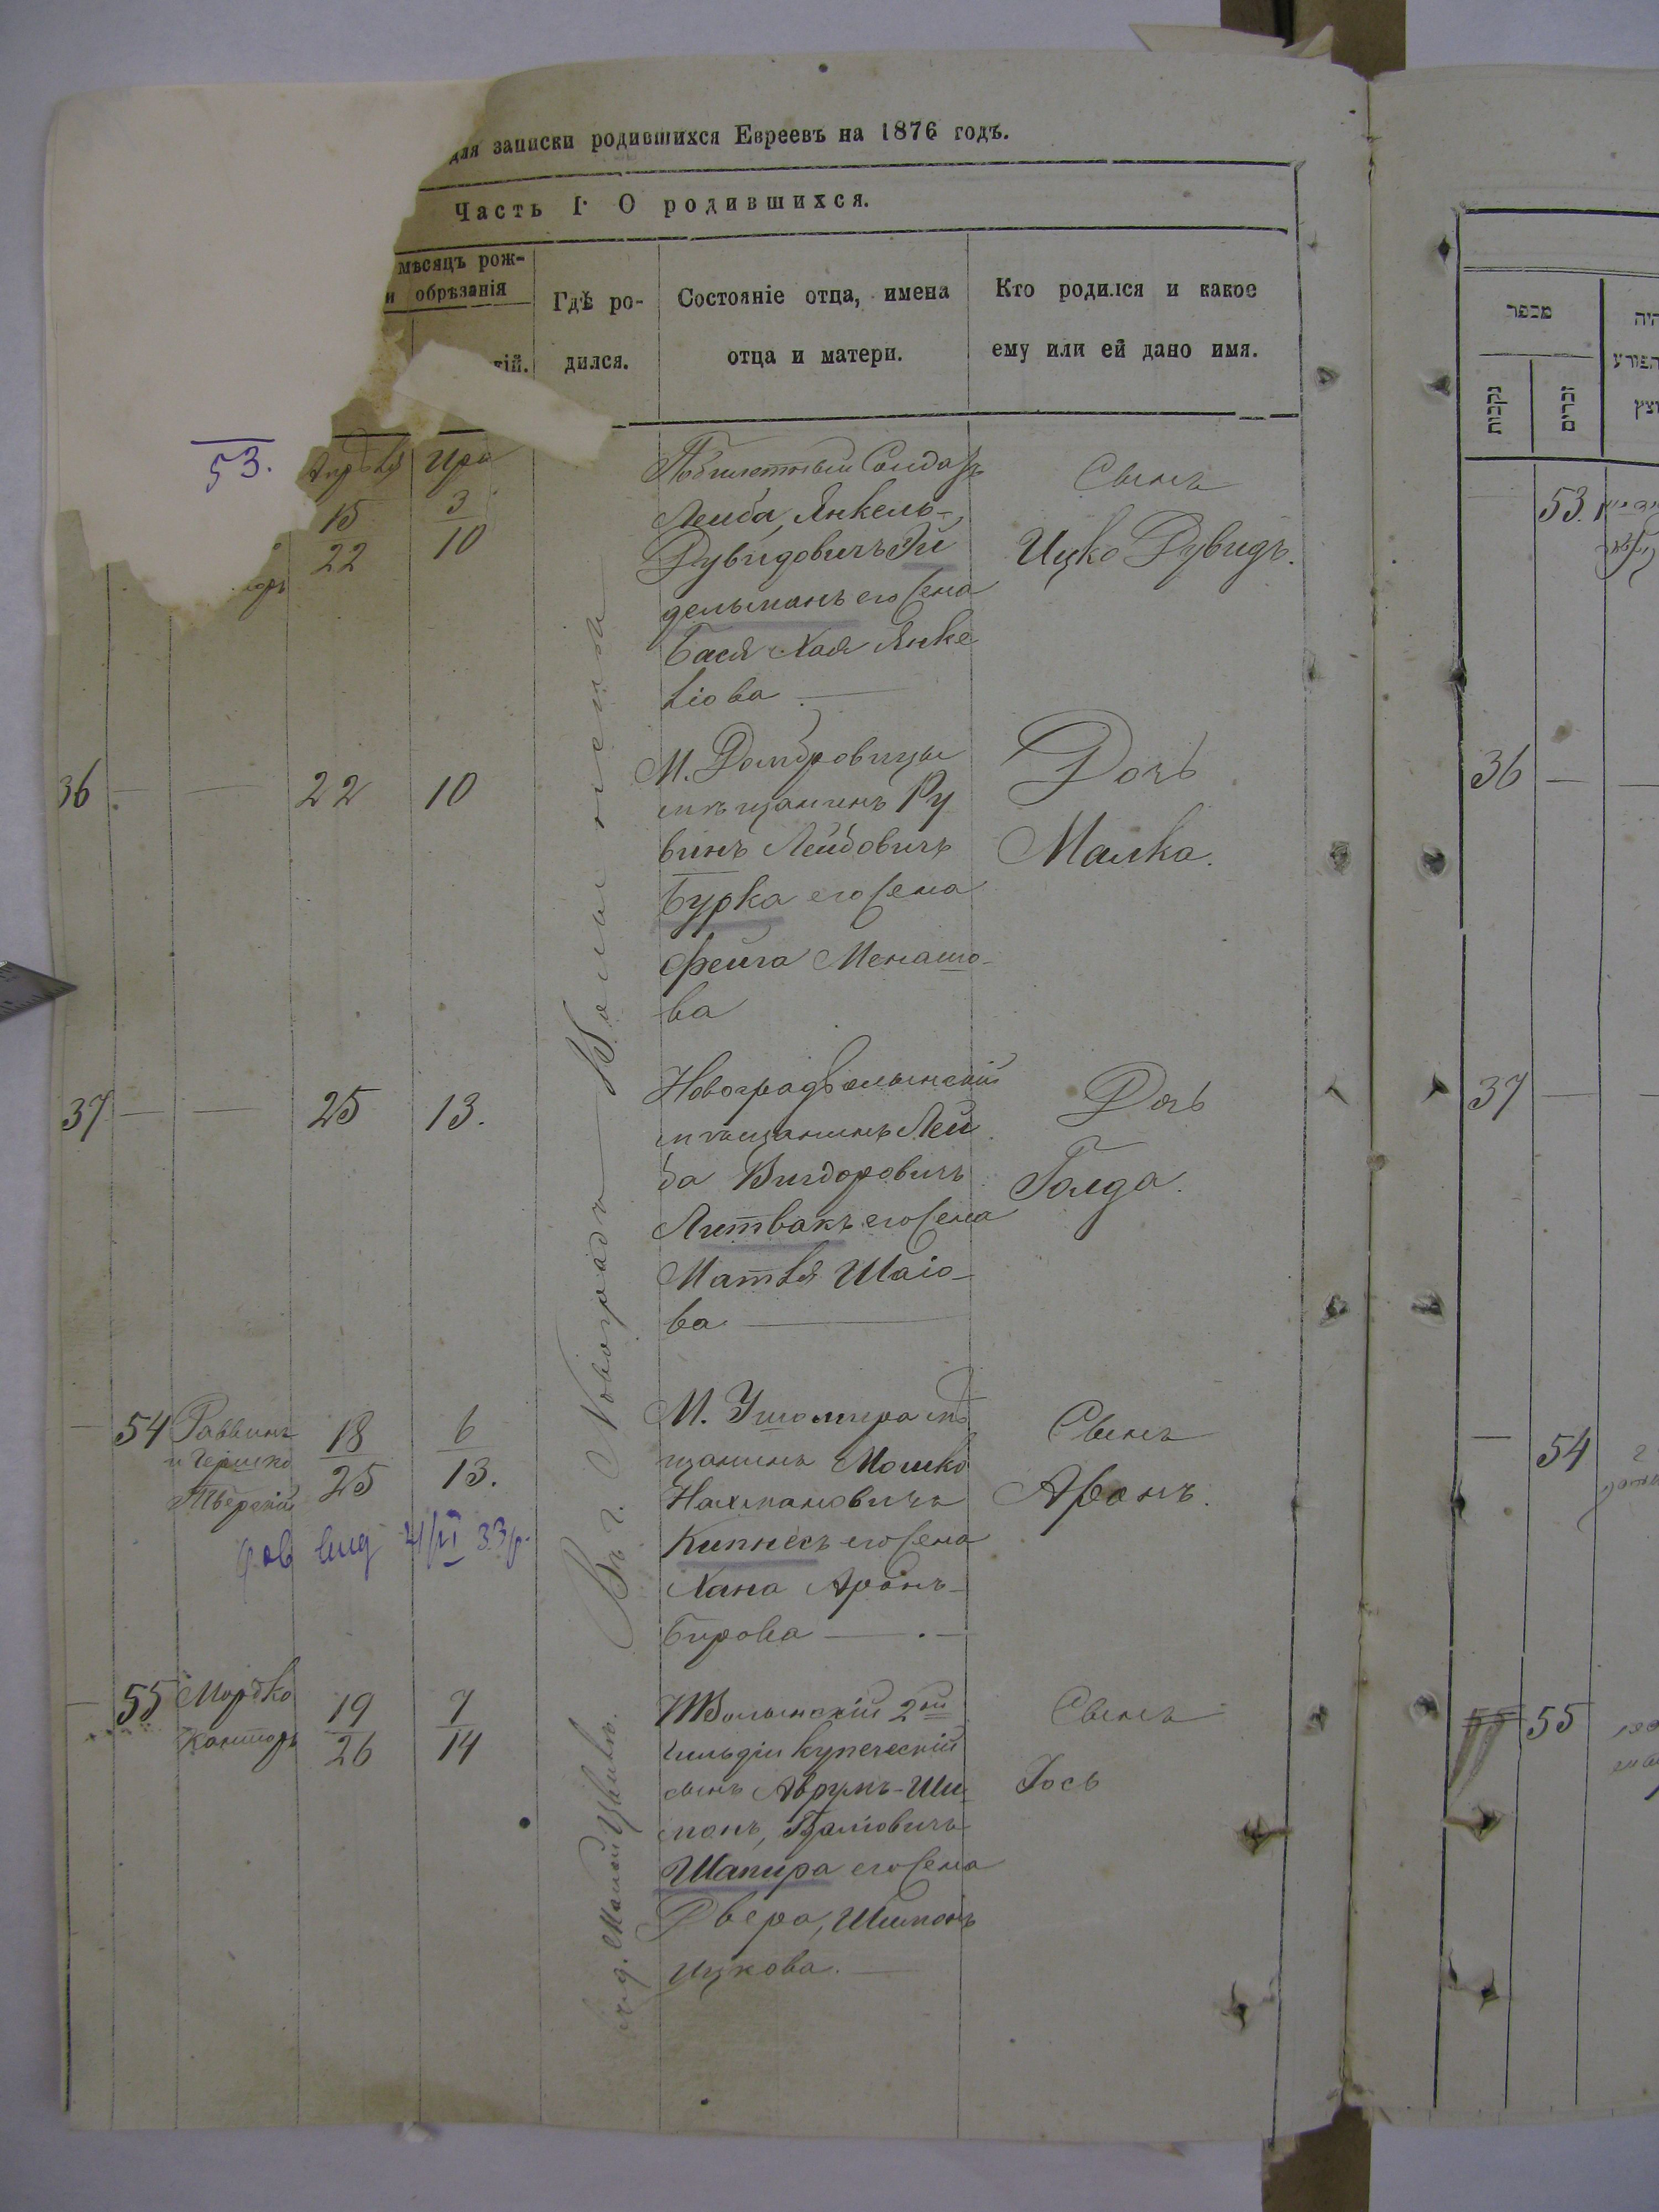 для записки родившихся Евреевъ на 1876 годъ.
Часть I. О родившихся.
мѣсяцъ рож-
и обрѣзанія
Гдѣ ро-
дился.
Состояніе отца, имена
отца и матери.
Кто родился и какое
ему или ей дано имя.
тій.
53.
15
22
3
10
Лейба, Янкель-
Рувидовичъ Ги
дельманъ его жена
Бася Хая Янке
ліова
Сынъ
Ицко Рувидъ.
36 — — 22 10
М. Домбровицы
мѣщанинъ Ру
винъ Лейбовичъ
Бурка его жена
Фейга Менашо-
ва
Дочь
Малка.
37 — — 25 13.
Новоградволынский
мѣщанинъ Лей
ба Вигдоровичъ
Литвакъ его жена
Матля Шаіо-
ва
Дочь
Голда.
— 54 Раввинъ
и Гершко
Тверскій
18
25
6
13.
М. Ушомира мѣ
щанинъ Мошко
Нахмановичъ
Кипнесъ его жена
Хана Аронъ-
Берова
Сынъ
Аронъ.
— 55 Мордко
Канторъ
19
26
7
14
2й
гильдіи купеческій
сынъ Аврумъ-Ши
монъ,
Шапира его жена
Двера, Шимонъ
Ицкова.
Сынъ
Іось
Въ г. Новоградъ Волынскѣ
מספר
נקבות
זכרים
53.
36 —
37 —
— 54
55 55